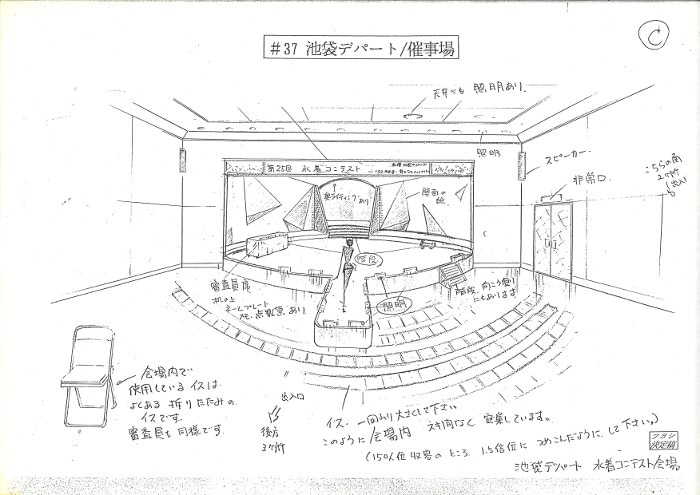 #37 池袋デパート/催事場
C
天井にも 照明あり.
照明
スピーカー.
非常口
こちらの面
2ヶ所
出入口
第25回 水着コンテスト
審査員席
机の上
ネームプレート
階段
照明
階段 向こう側
にもあります
会場内で
使用しているイスは
よくある 折りたたみの
イスです.
審査員も同様です.
出入口
後方
3ヶ所
イス. 一回り大きくして下さい
このように会場内 すき間なく 密集しています.
(150人位収容のところ 1.5倍位に つめこんだように して下さい。)
決定稿
池袋デパート 水着コンテスト会場